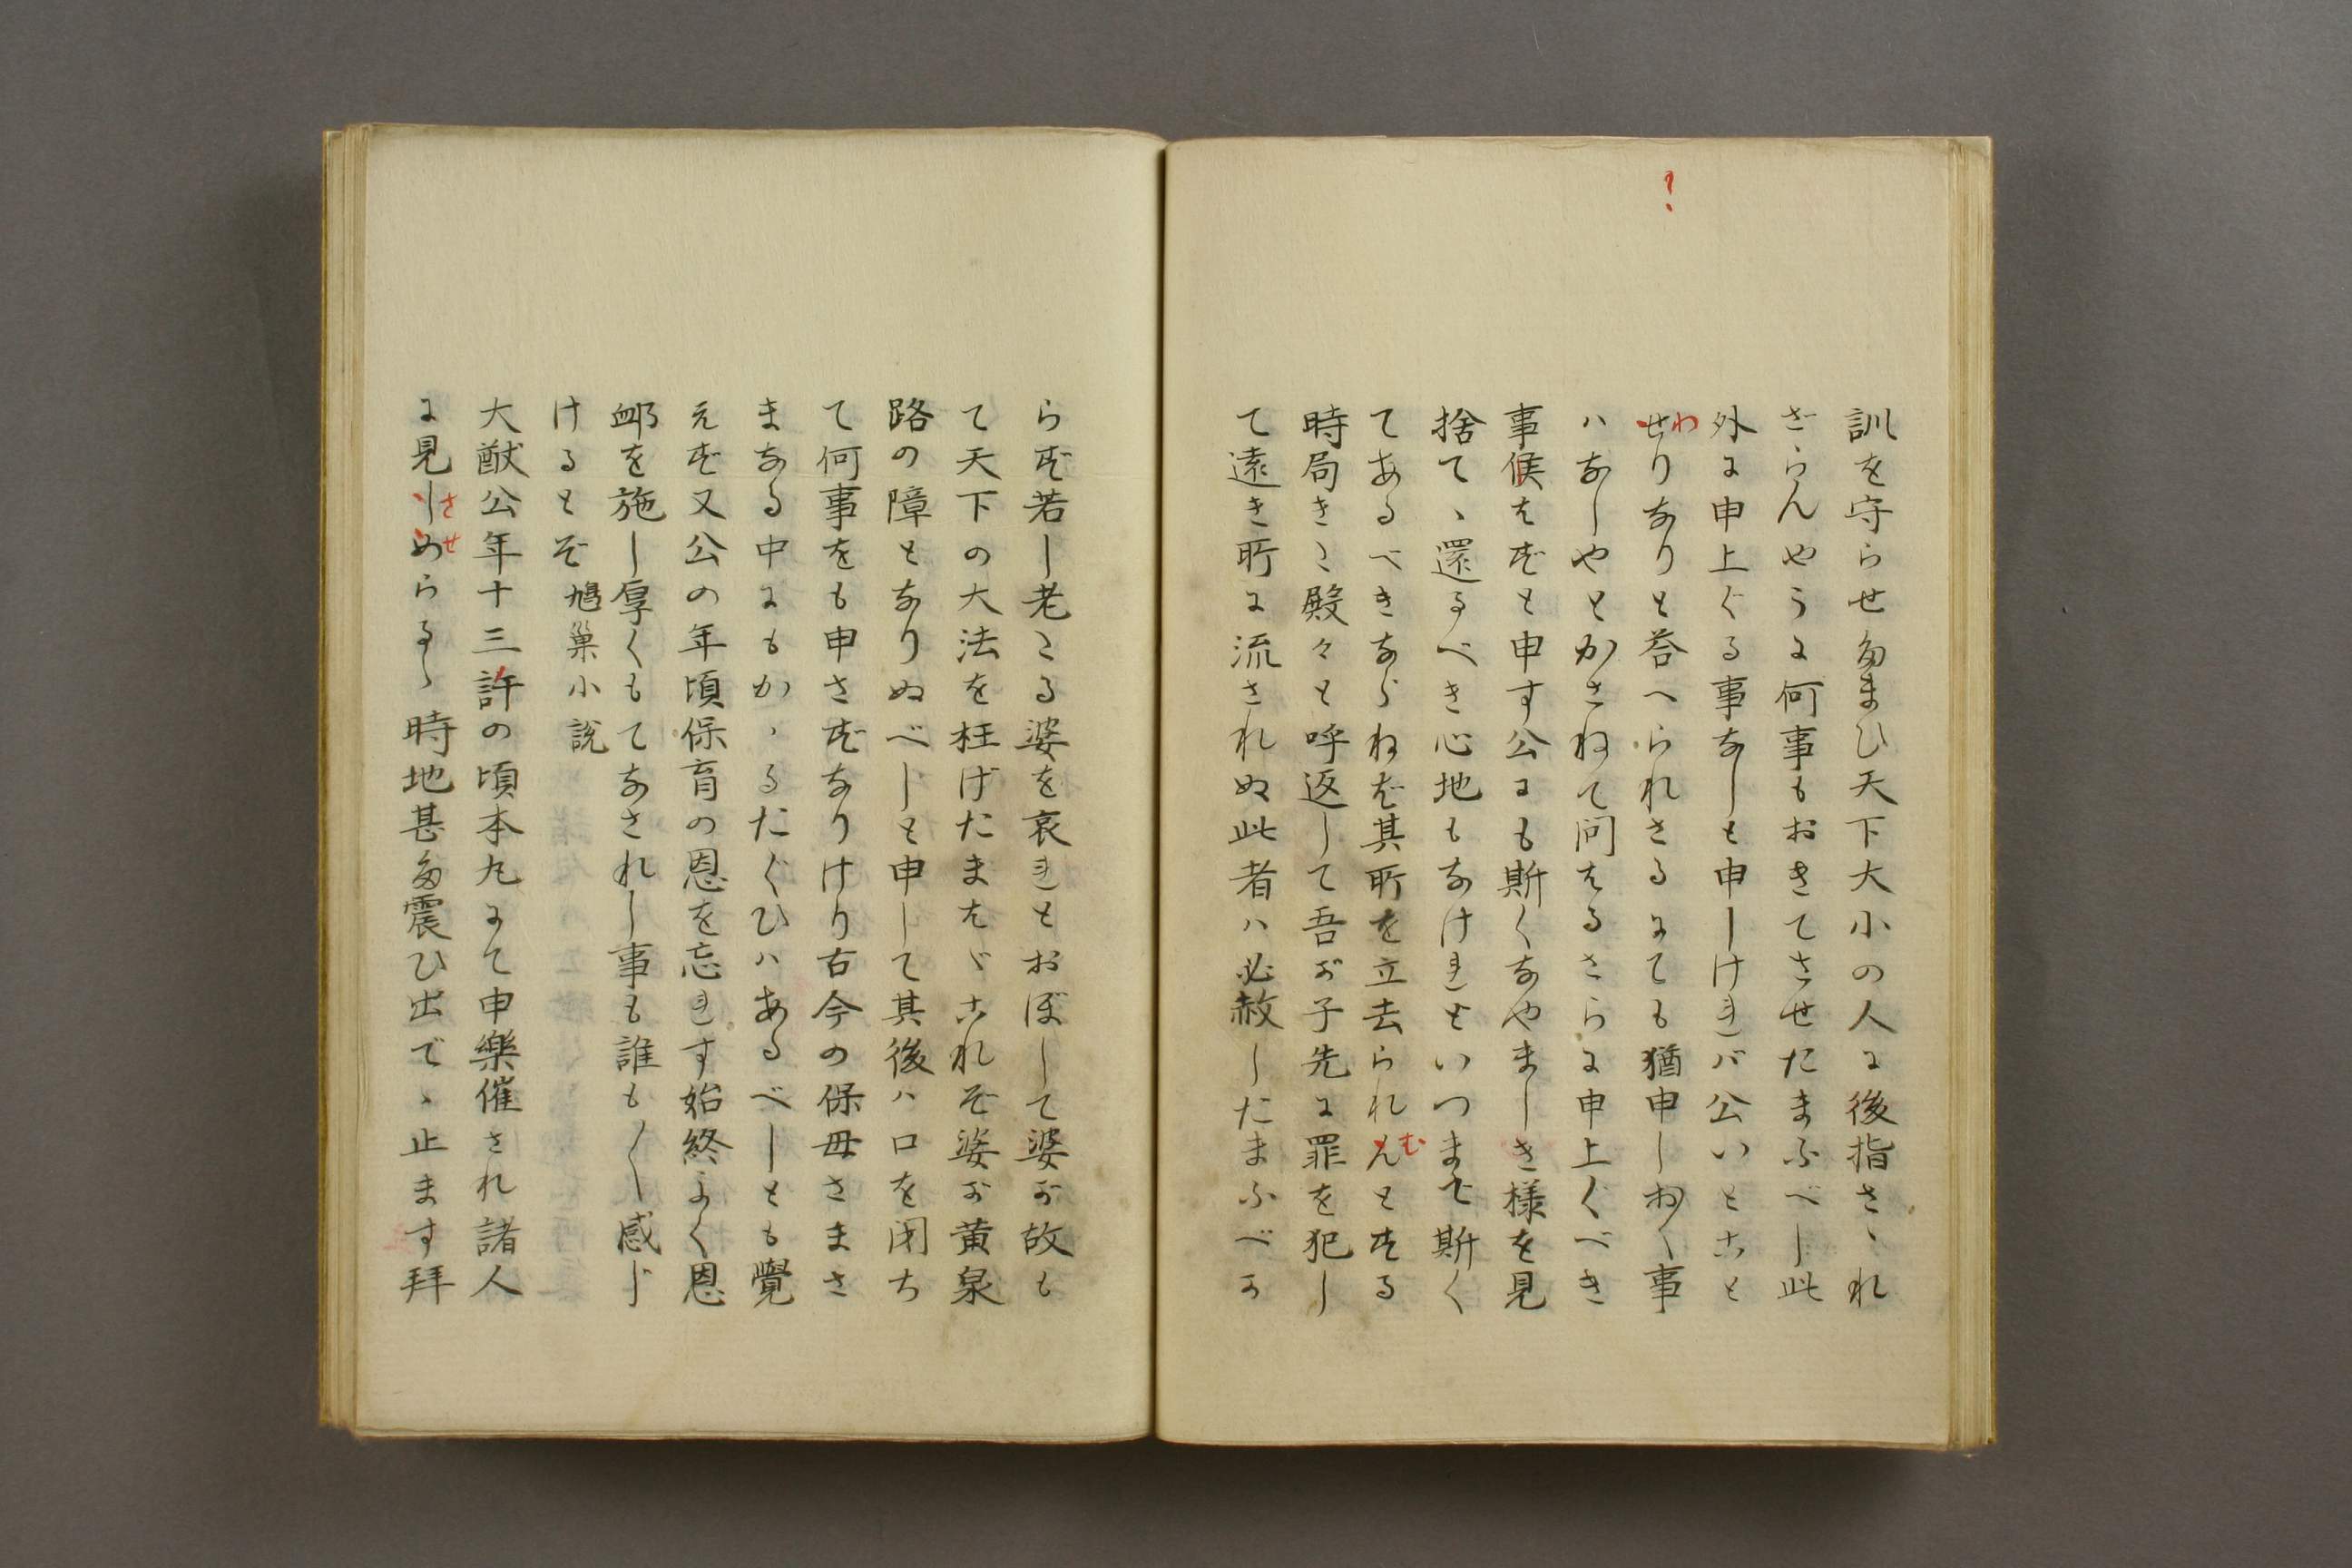 訓を守らせ給まひ天下大小の人に後指さゝれ
ざらんやうに何事もおきてさせたまふべし此
外に申上ぐる事なしと申しけれバ公いとこと
せりなりと答へられさるにても猶申しおく事
わ
ハなしやとかさねて問はるさらに申上ぐべき
事候はずと申す公にも斯くなやましき様を見
捨てゝ還るべき心地もなけれといつまで斯く
てあるべきならねば其所を立去られんとする
む
時局きこ殿々と呼返して吾が子先に罪を犯し
て遠き所に流されぬ此者ハ必赦したまふべか
らず若し老こる婆を哀れとおぼして婆が故も
て天下の大法を枉げたまはゞこれぞ婆が黄泉
路の障となりぬべしと申して其後ハ口を閉ち
て何事をも申さずなりけり古今の保母さまさ
まなる中にもかゝるたぐひハあるべしとも覺
えず又公の年頃保育の恩を忘れす始終よく恩
䘏を施し厚くもてなされし事も誰も〳〵感じ
けるとぞ 鳩巣小説
大猷公年十三許の頃本丸にて申樂催され諸人
に見しめらるゝ時地甚多震ひ出でゝ止ます拜
させ